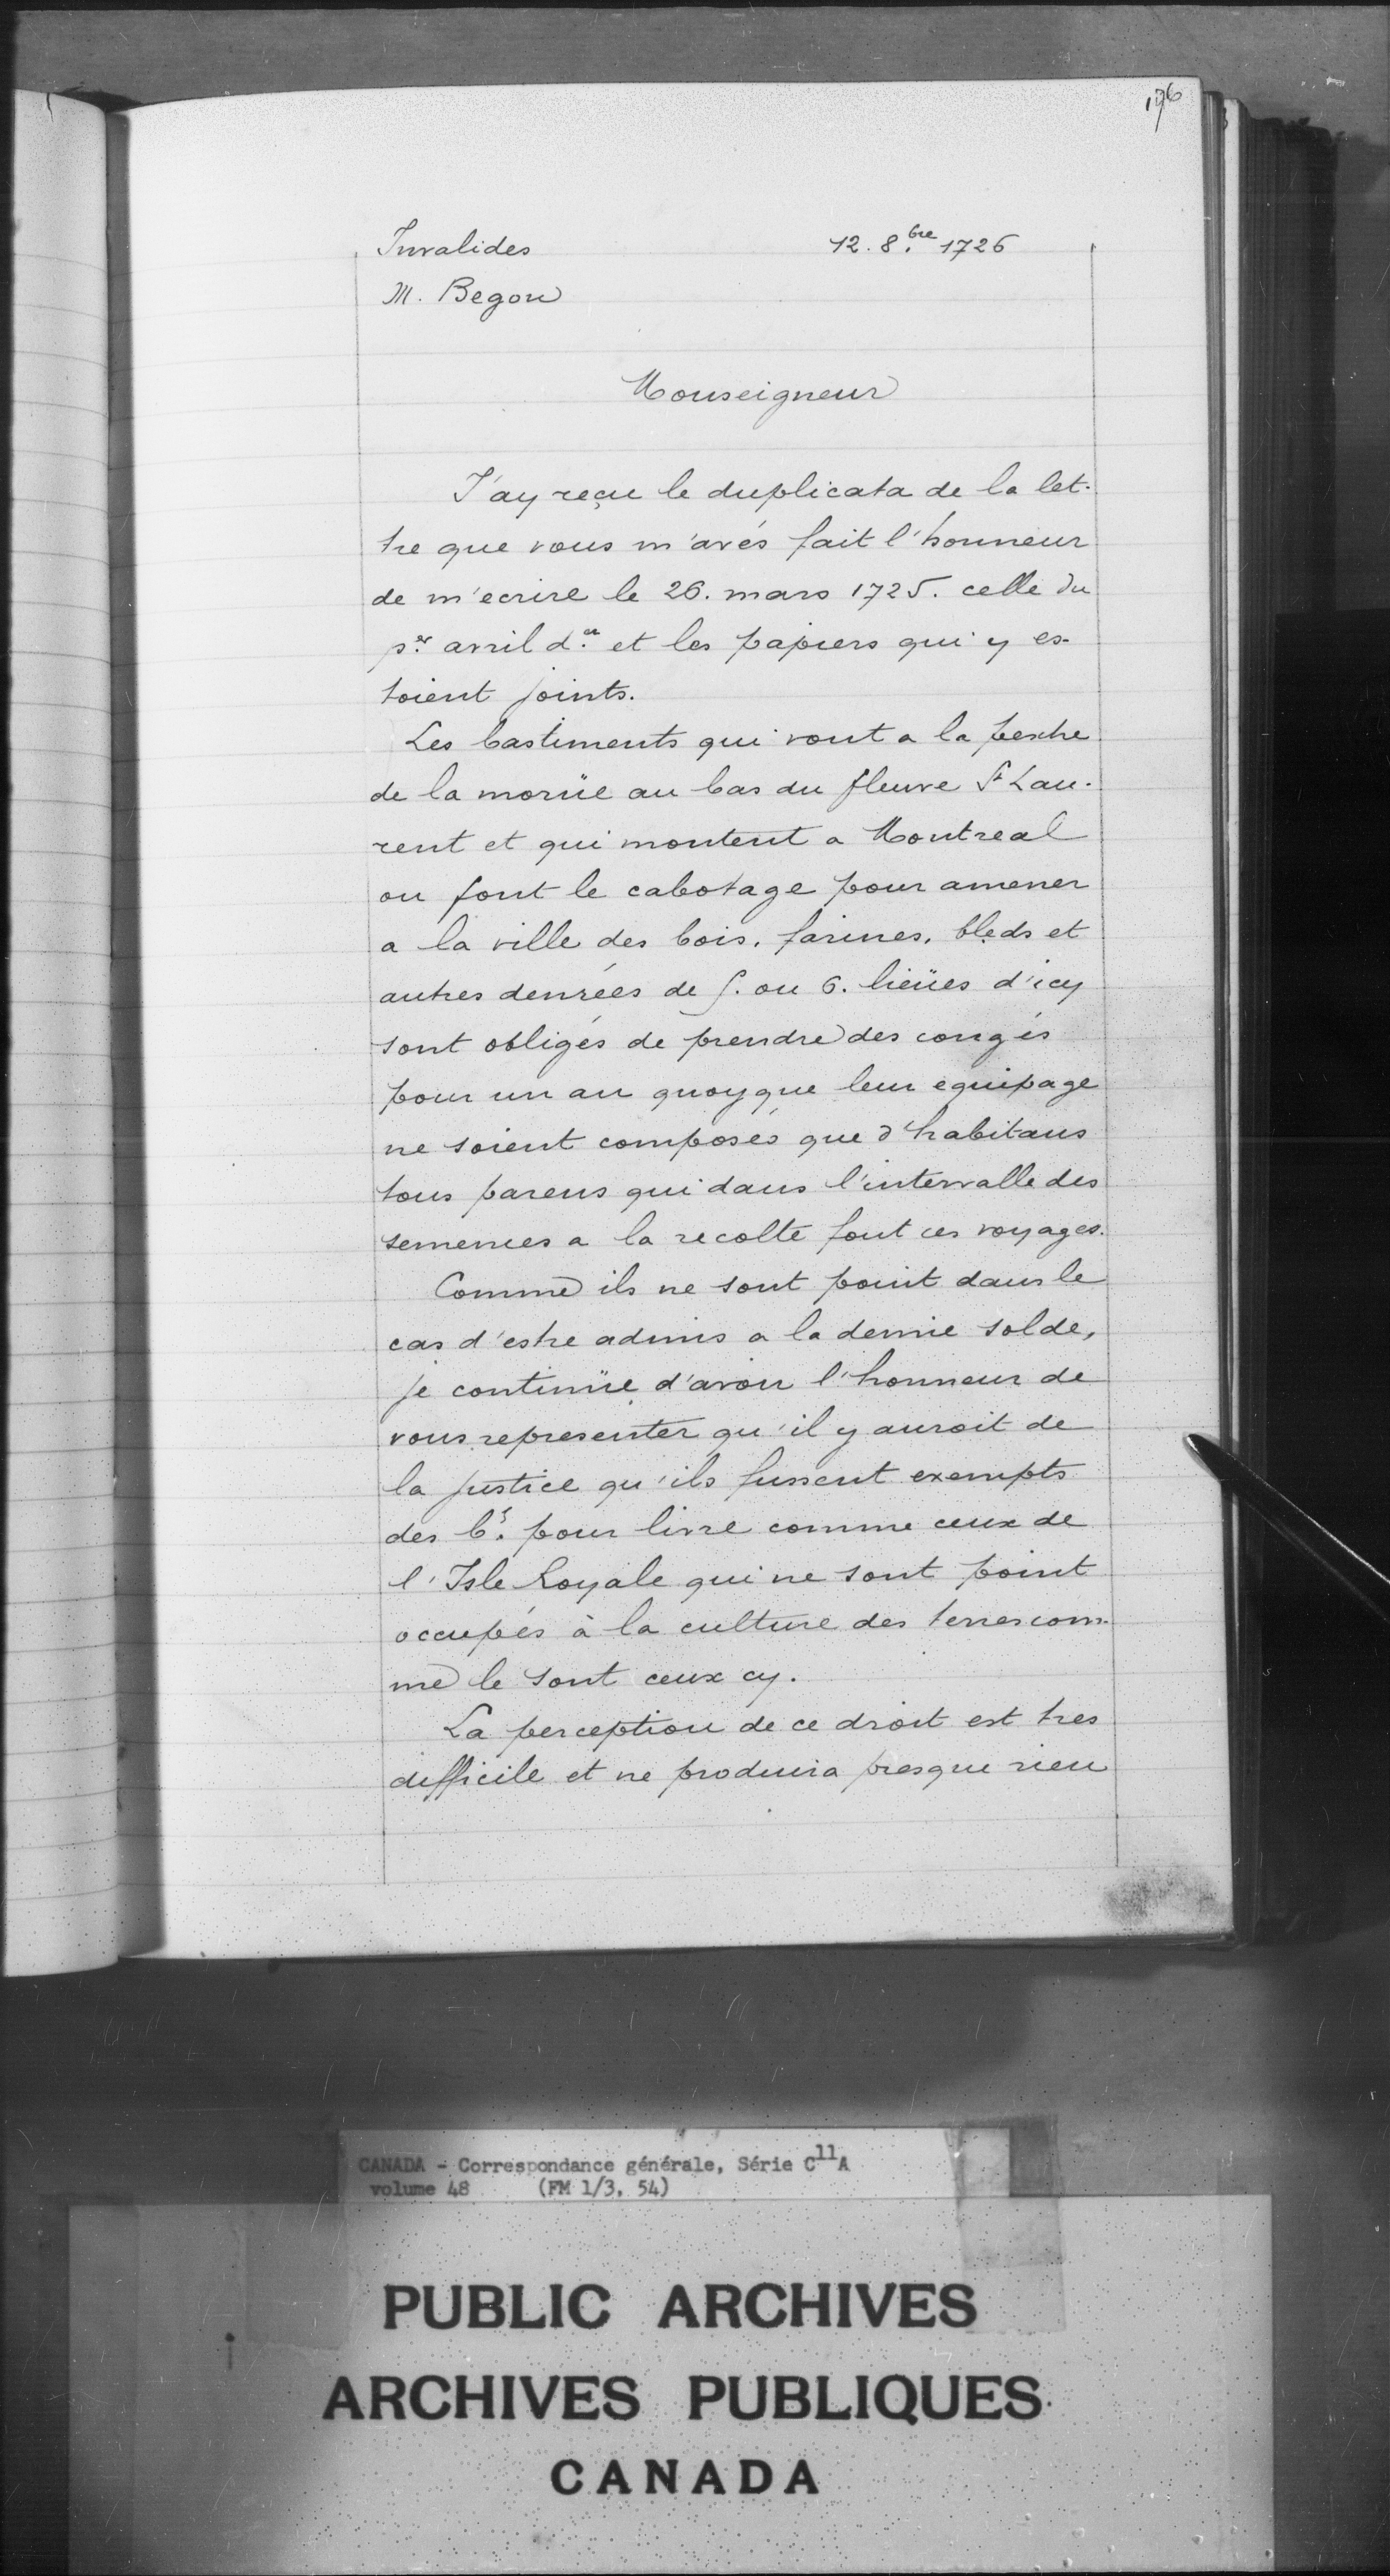 176
Invalides 12. 8.bre 1726
M. Begon
Monseigneur
J'ay reçu le duplicata de la let-
tre que vous m'avés fait l'honneur
de m'ecrire le 26. mars 1725. celle du
p.er avril d.er et les papiers qui y es-
toient joints.
Les bastiments qui vont a la pesche
de la morüe au bas du fleuve St Lau-
rent et qui montent a Montreal
ou font le cabotage pour amener
a la ville des bois, farines, bleds et
autres denrées de 5. ou 6. lieües d'icy
sont obligés de prendre des congés
pour un an quoyque leur equipage
ne soient composés que d'habitans
tous parens qui dans l'intervalle des
semences a la recolte font ces voyages.
Comme ils ne sont point dans le
cas d'estre admis a la demie solde,
je continüe d'avoir l'honneur de
vous representer qu'il y auroit de
la justice qu'ils fussent exempts
des 6.s pour livre comme ceux de
l'Isle Royale qui ne sont point
occupés à la culture des terres com-
me le sont ceux cy.
La perception de ce droit est tres
difficile et ne produira presque rien
CANADA - Correspondance générale, Série C11A
volume 48 (FM 1/3, 54)
PUBLIC ARCHIVES
ARCHIVES PUBLIQUES
CANADA